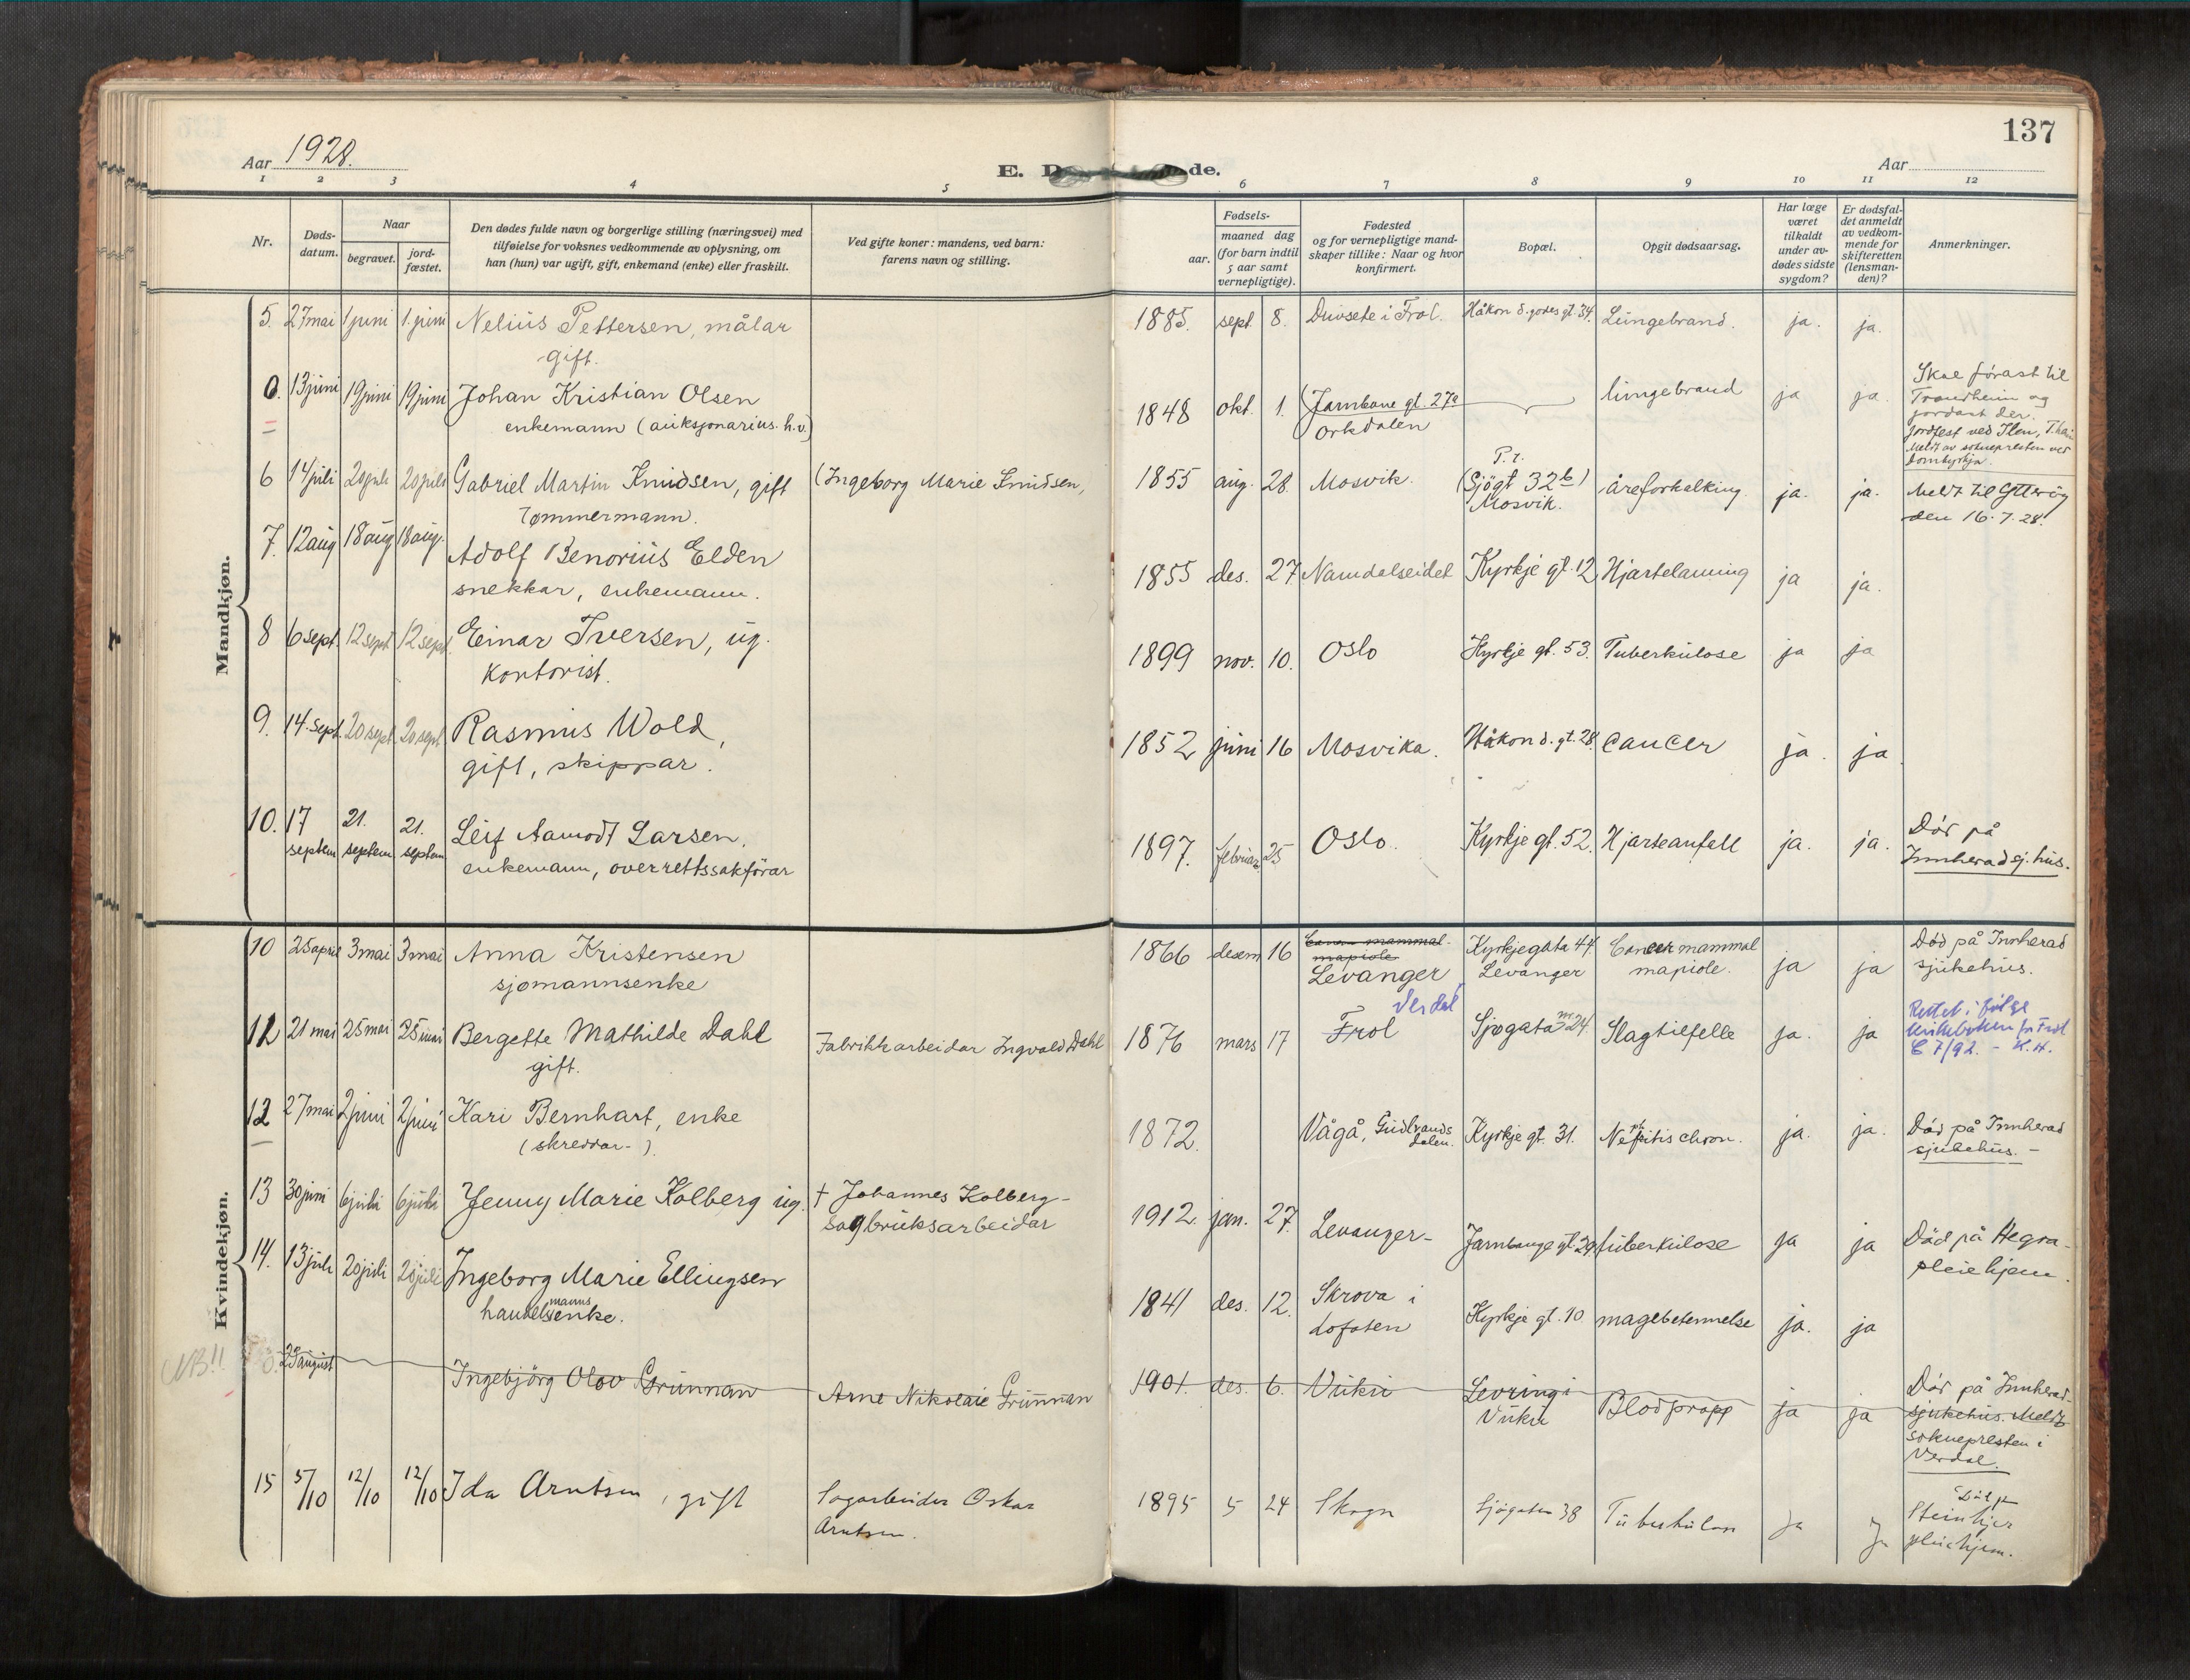 137
Aar 1928.
E. D de.
Aar
1 2 3 4 5 6 7 8 9 10 11 12
Nr.
Døds-
datum.
Naar
begravet.
jord-
fæstet.
Den dødes fulde navn og borgerlige stilling (næringsvei) med
tilføielse for voksnes vedkommende av oplysning, om
han (hun) var ugift, gift, enkemand (enke) eller fraskilt.
Ved gifte koner: mandens, ved barn:
farens navn og stilling.
Fødsels-
aar.
maaned dag
(for barn indtil
5 aar samt
vernepligtige).
Fødested
og for vernepligtige mand-
skaper tillike: Naar og hvor
konfirmert.
Bopæl.
Opgit dødsaarsag.
Har læge
været
tilkaldt
under av-
dødes sidste
sygdom?
Er dødsfal-
det anmeldt
av vedkom-
mende for
skifteretten
(lensman-
den)?
Anmerkninger.
Mandkjøn.
5. 27 mai 1 juni 1. juni Nelius Pettersen, målar
gift.
1885. sept. 8. i Frol. Håkon d. godes gt. 34. Lungebrand. ja. ja.
0. 13 juni 19 juni 19 juni Johan Kristian Olsen
enkemann (auksjonarius. h.v.)
1848 okt. 1. (Jarnbane gt. 27a
Orkdalen
lungebrand ja ja.
Skal førast til
Trondheim og
jordast der.
Jordfest ved Ilen, T.heim
Meldt av soknepresten ved
Domkyrkja.
6 14 juli 20 juli 20 juli Gabriel Martin Knudsen, gift
Tømmermann.
(Ingeborg Marie Knudsen,
1855 aug. 28. Mosvik. P.t.
(Sjögt 32b)
Mosvik.
åreforkalking. ja. ja.
Meldt til Ytterøy
den 16.7.28.
7. 12 aug 18 aug 18 aug. Adolf Benorius Elden
snekkar, enkemann.
1855 des. 27 Namdalseidet Kyrkje gt. 12 Hjartelaming ja ja.
8 6 sept. 12 sept 12 sept Einar Iversen, ug.
kontorist.
1899 nov. 10. Oslo Kyrkje gt. 53. Tuberkulose ja ja
9. 14. sept. 20 sept. 20 sept Rasmus Wold,
gift, skippar.
1852 juni 16 Mosvika. Håkon d. gt. 28. Cancer ja. ja
10. 17
septem
21.
septem.
21.
septem
Leif Aamodt Larsen.
enkemann, overrettssakförar
1897. februar 25 Oslo. Kyrkje gt. 52. Hjarteanfall ja. ja.
Död på
Innherad sj. hus.
Kvindekjøn.
10 25 april 3 mai 3 mai Anna Kristensen
sjømannsenke
1866 desem 16 Cancer mammal-
mapiole
Levanger
Kyrkjegata 44.
Levanger
Cancer mammal
mapiole. ja ja
Död på Innherad
sjukehus.
12 21 mai 25 mai 25 mai Bergette Mathilde Dahl
gift.
Fabrikkarbeidar Ingvald Dahl
1876 mars 17 Verdal
Frol
Sjøgata nr 24. Slagtilfelle ja. ja
Rettet i følge
kirkeboken for Frol
C 7/92. - K.H.
12 27 mai 2 juni 2 juni Kari Bernhart, enke
(skreddar-).
1872. Vågå, Gudbrands
dalen.
Kyrkje gt. 31. Nefritis chron. ja. ja.
Död på Innherad
sjukehus. -
13 30 juni 6 juli 6 juli Jenny Marie Kolberg ug. † Johannes Kolberg-
sagbruksarbeidar
1912. jan. 27. Levanger- Jarnbanegt. 29 tuberkulose ja ja
Död på Hegra-
pleiehjem.
14. 13 juli 20 juli 20 juli Ingeborg Marie Ellingsen
handelsmannsenke.
1841 des. 12. Skrova i
Lofoten
Kyrkje gt. 10 magebetennelse ja. ja
NB!! august Ingebjörg Olov Grunnan
Arne Nikolaie Grunnan
1901. des. 6. Vuku Levring i
Vuku
Blodpropp ja ja
Död på Innherad
sjukehus. Meldt
soknepresten i
Verdal.
15 5/10 12/10 12/10 Ida Arntsen, gift
Sagarbeider Oskar
Arntsen.
1895 5 24 Skogn Sjögaten 38 Tuberkulose ja ja
Död på
Steinkjer
pleiehjem.